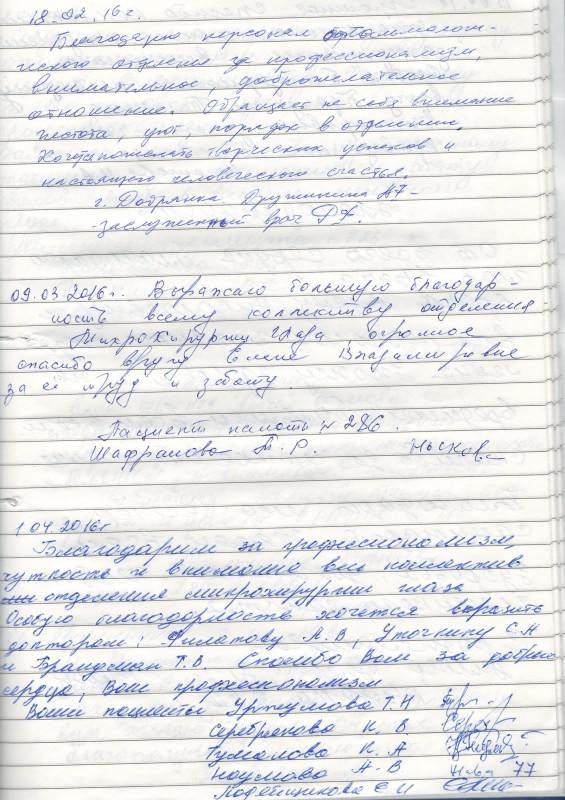 18.02.16г.
Благодарю персонал офтальмологи-
ческого отделения за профессионализм,
внимательное, доброжелательное
отношение. Обращает на себя внимание
чистота, уют, порядок в отделении.
Хотела пожелать творческих успехов и
настоящего человеческого счастья.
г. Добрянка Дружинина АФ-
-заслуженный врач РФ.
09.03.2016г. Выражаю большую благодар-
ность всему коллективу отделения-
Микрохирургии глаза огромное
спасибо врачу Елене Владимировне
за её труд и заботу.
Пациент палаты № 286.
Шафранова Т. Р.
1.04.2016г
Благодарим за профессионализм,
чуткость и внимание весь коллектив
отделения микрохирургии глаза
Особую благодарность хочется выразить
докторам: Филатову А. В, Уточкину С.Н
и Брандман Т.В. Спасибо Вам за добрые
сердца, Ваш профессионализм
Ваши пациенты Уржумова Т.Н
Серебрякова К. В.
Туманова К. А
Наумова А-В
Е И